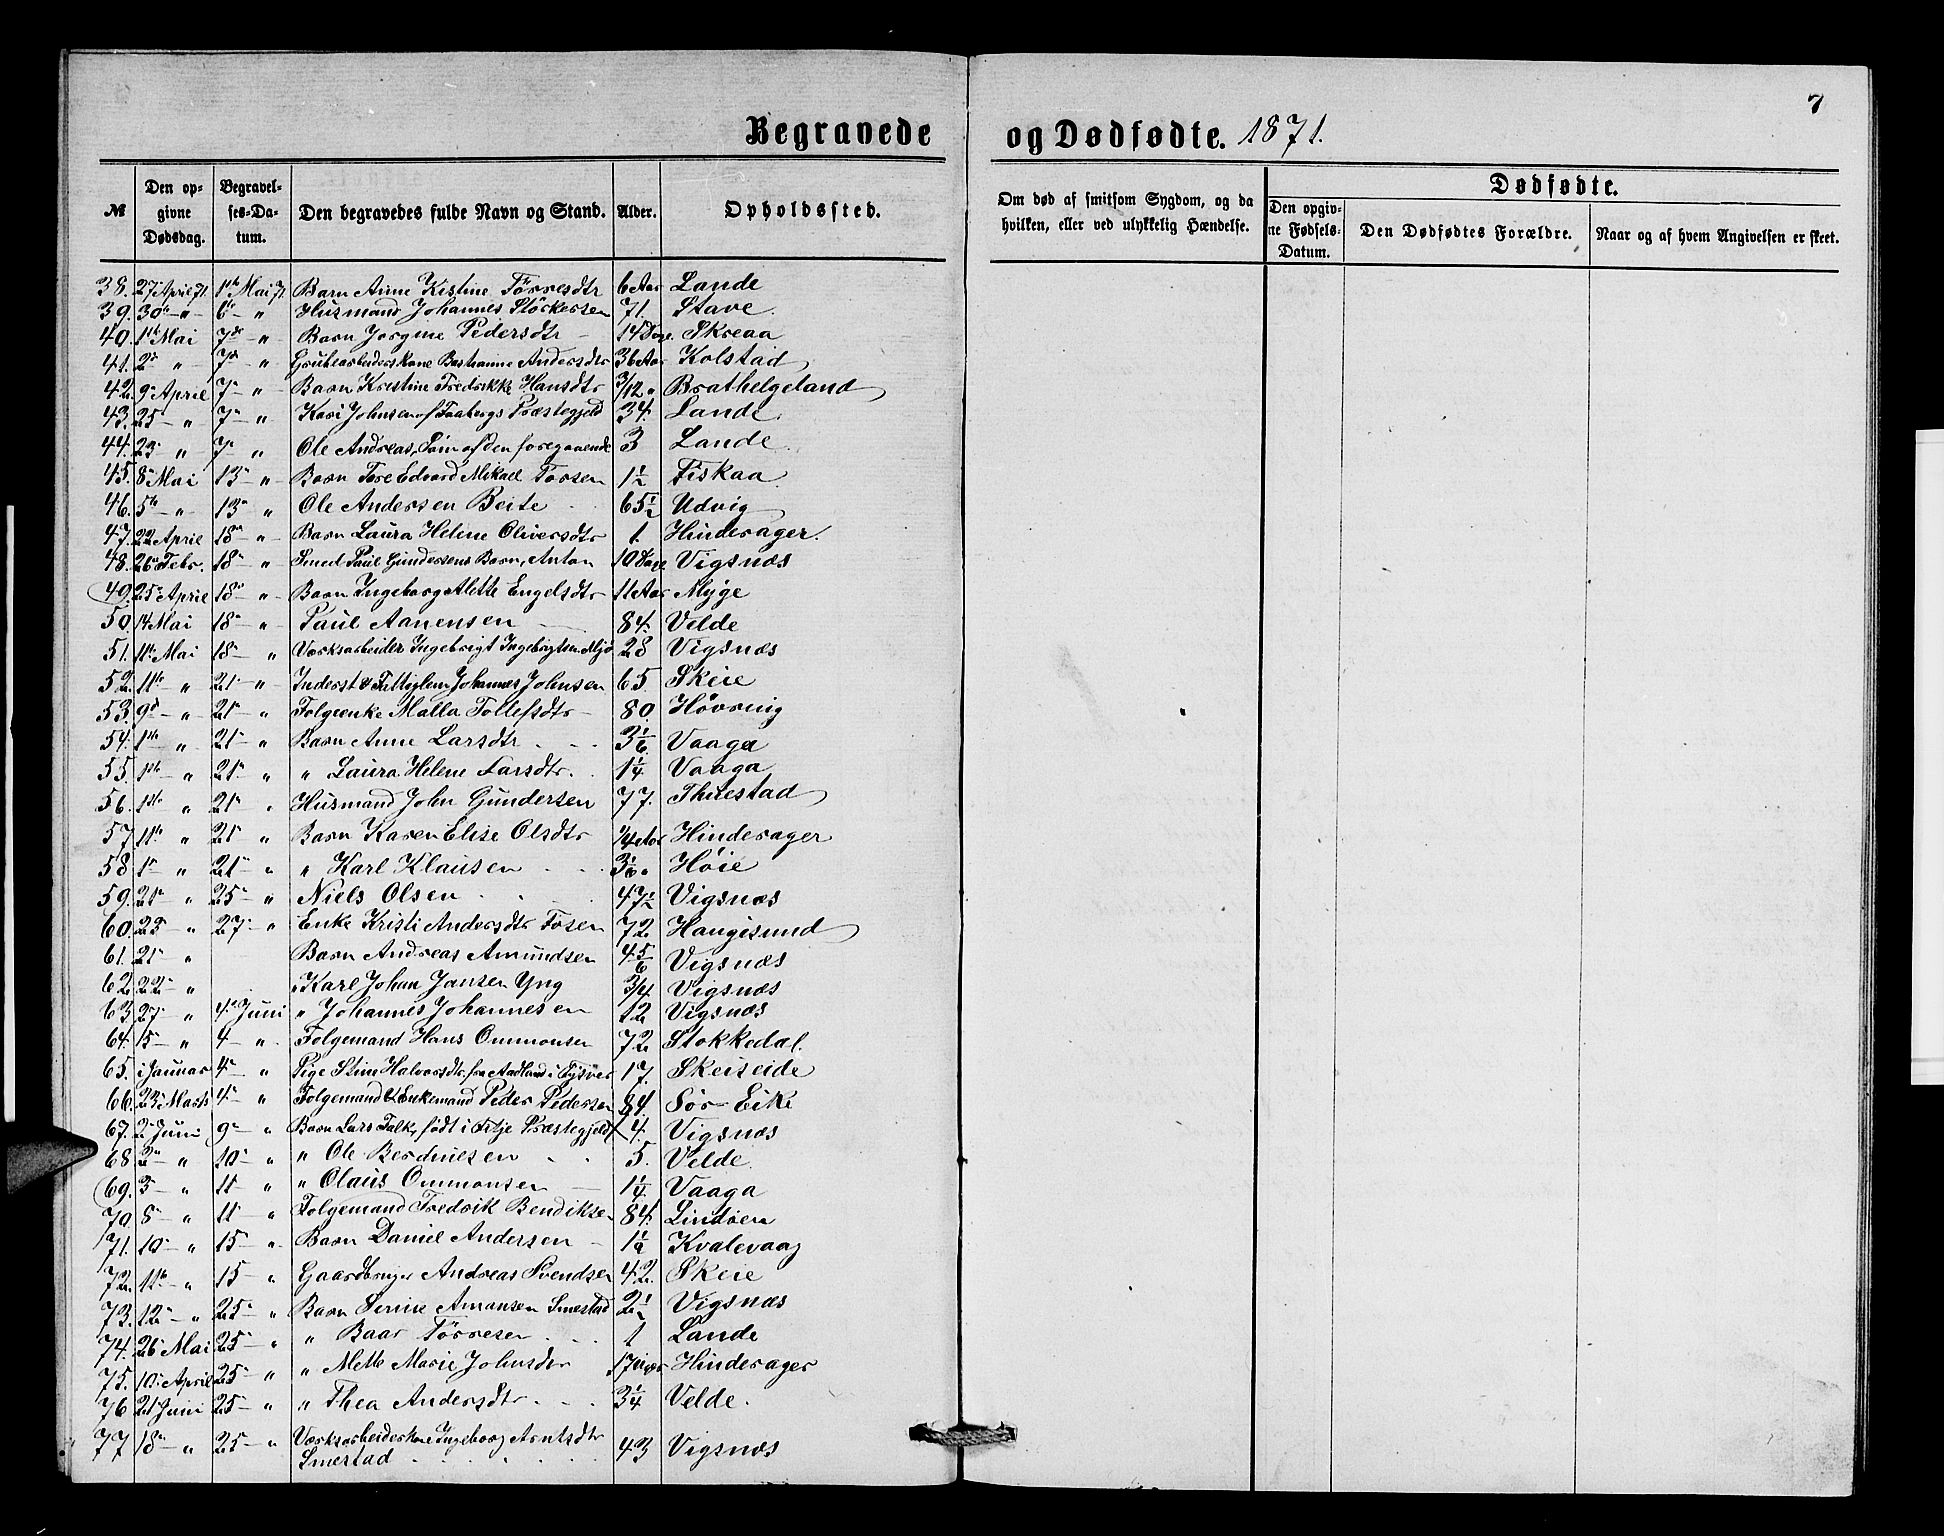 7
Begravede og Dødfødte. 1871.
№ | Den opgivne Dødsdag. | Begravelses-Datum. | Den begravedes fulde Navn og Stand. | Alder. | Opholdssted. | Om død af smitsom Sygdom, og da hvilken, eller ved ulykkelig Hændelse. | Dødfødte. | Den opgivne Fødsels-Datum. | Den Dødfødtes Forældre. | Naar og af hvem Angivelsen er skeet.
38. 27 April 71. 1ste Mai 71 Barn Anne Kistine Törresdtr 6 Aar Lande
39. 30te " 6te " Husmand Johannes Störkersen 71. Stave
40. 1ste Mai 7de " Barn Jorgine Pedersdtr 14 Dage. Skreaa
41. 2de " 7de " Grubearbeiderskone Andersdtr 36 Aar Kolstad
42. 9 April 7 " Barn Kristine Fredrikke Hansdtr 3/12 " Brathelgeland
43. 25 " 7 " Kari Johnsen of Faabergs Præstegjeld 34. Lande
44. 23 " 7 " Ole Andreas, Søn af den foregaaende 3 Lande
45. 8 Mai 13 " Barn Tore Edvard Mikael Torsen 1½ Fiskaa
46. 5te " 13 " Ole Andersen Beite 65½ Udvig
47. 22 April 18 " Barn Laura Helene Oliversdtr 1. Hinderager.
48. 26 Febr. 18 " Smed Paul Gundersens Barn, Anton 10 Dage Vigsnæs
49. 25 April 18 " Barn Ingeborg Alette Engelsdtr 11 Aar Myge
50. 14 Mai 18 " Paul Aanensen 84. Velde
51. 11te Mai 18 " Værksarbeider Ingebrigt Ingebrigtsen 28 Vigsnæs
52. 11te " 21 " Inderst & Fattiglem Johannes Johnsen 65. Skeie
53. 9de " 21 " Folgeenke Malla Tollefsdtr 80. Hövring
54. 1ste " 21 " Barn Anne Larsdtr 3 1/6 Vaaga
55. 1ste " 21 " " Laura Helene Larsdtr. 1¼ Vaaga
56. 1ste " 21 " Husmand John Gundersen 77. Thuestad
57. 11te " 21 " Barn Karen Elise Olsdtr ¼ Aar Hinderager
58. 1 " 21 " " Karl Klausen 3 1/6 " Höie
59. 21 " 25 " Niels Olsen 47½ Vigsnæs
60. 23 " 27 " Enke Kristi Andersdtr Fosen 72 Haugesund
61. 21 " Barn Andreas Amundsen 4 5/6 Vigsnæs
62. 22 " " Karl Johan Jansen Yng 3/4 Vigsnæs
63. 27 " 4 Juni " Johannes Johannesen 12 Vigsnæs
64. 15 " 4 " Folgemand Hans Ommonsen 72 Stokkedal.
65. i Januar 4 " Pige Stine Halvorsdtr. fra Aadland i Tysvær 17. Skeiseide
66. 23 Marts 4 " Folgemand & Enkemand Peder Pedersen 84. Sör-Eike
67. 2 Juni 9 " Barn Lars Falk, født i Fitje Præstegjeld 4. Vigsnæs
68 2 " 10 " " Ole Berdniesen 5. Velde
69. 3 " 11 " " Olaus Ommonsen 1¼ Vaaga
70. 8 " 11 " Folgemand Fredrik Bendiksen 84. Lindöen
71. 10 " 15 " Barn Daniel Andersen Kvalevaag
72. 11te " 15 " Gaardbruger Andreas Svendsen 42. Skeie
73. 12 " 25 " Barn Amansen Smestad 2½ Vigsnæs
74. 26 Mai 25 " " Baar Törresen 1 Lande
75. 10 April 25 " " Mette Marie Johnsdtr 17 Uger Hinderager
76 21 Juni 25 " " Thea Andersdtr. 3¼ Velde.
77 18 " 25 " Værksarbeiderkone Ingeborg Arntsdtr Smestad 43 Vigsnæs